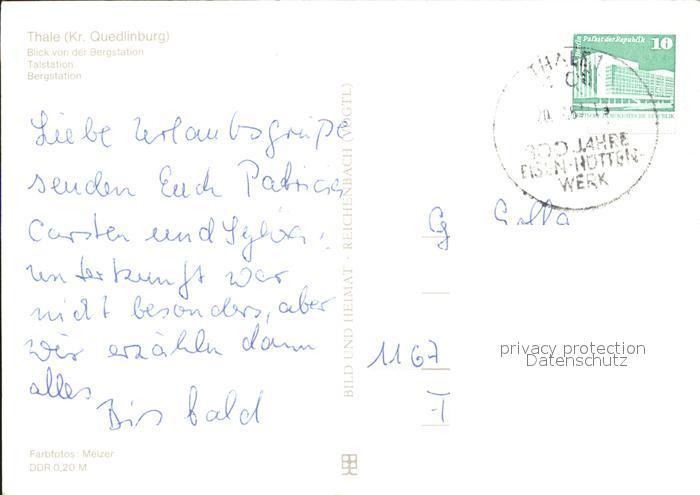 Thale (Kr. Quedlinburg)
Blick von der Bergstation
Talstation
Bergstation
Liebe Urlaubsgrüße
senden Euch Patricia
Carsten und Sylvia.
Unterkunft war
nicht besonders, aber
wir erzählen dann
alles
Bis bald
Farbfotos: Melzer
DDR 0,20 M
BILD UND HEIMAT · REICHENBACH (VOGTL)
Palast der Republik 10
DEUTSCHE DEMOKRATISCHE REPUBLIK
THALE 1
300 JAHRE
EISEN-HÜTTEN-
WERK
1167
privacy protection
Datenschutz